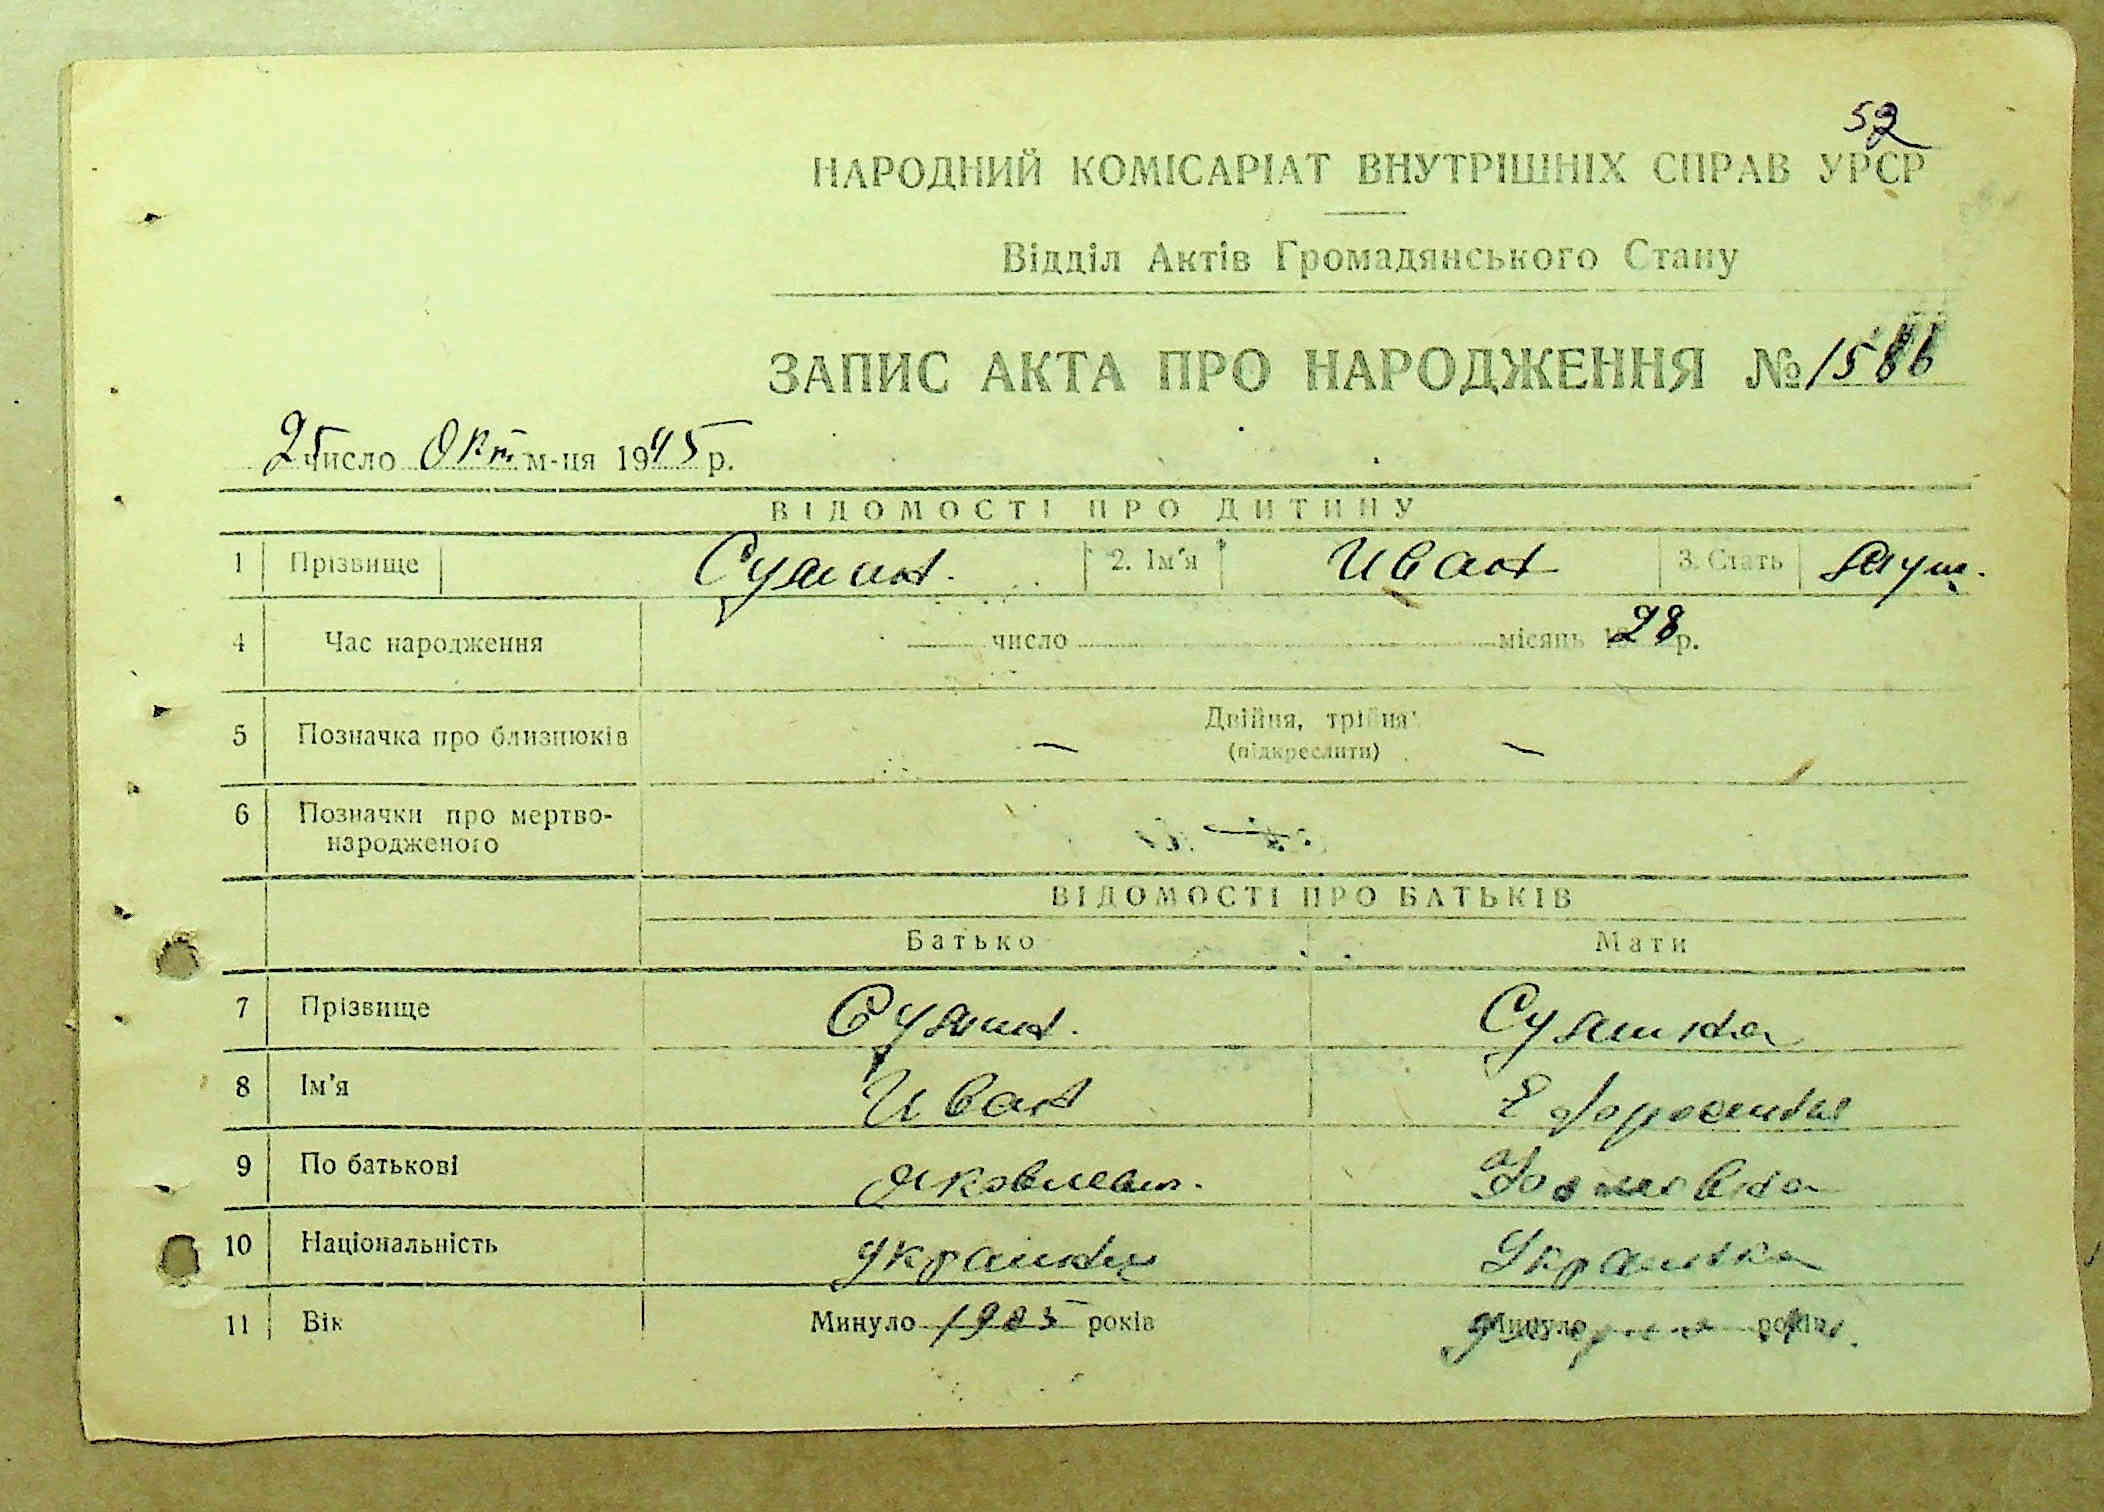 52
НАРОДНИЙ КОМІСАРІАТ ВНУТРІШНІХ СПРАВ УРСР
Відділ Актів Громадянського Стану
ЗАПИС АКТА ПРО НАРОДЖЕННЯ № 1586
25 число Окт. м-ця 1945 р.
ВІДОМОСТІ ПРО ДИТИНУ
1 Прізвище Сумин. 2. Ім'я Иван 3. Стать муж.
4 Час народження число місяць 1928 р.
5 Позначка про близнюків Двійня, трійня
(підкреслити)
6 Позначки про мертво-
народженого
ВІДОМОСТІ ПРО БАТЬКІВ
Батько Мати
7 Прізвище Сумин. Сумина
8 Ім'я Иван Ефросиния
9 По батькові Яковлевич.
10 Національність Украинец Украинка
11 Вік Минуло 1905 років Минуло років